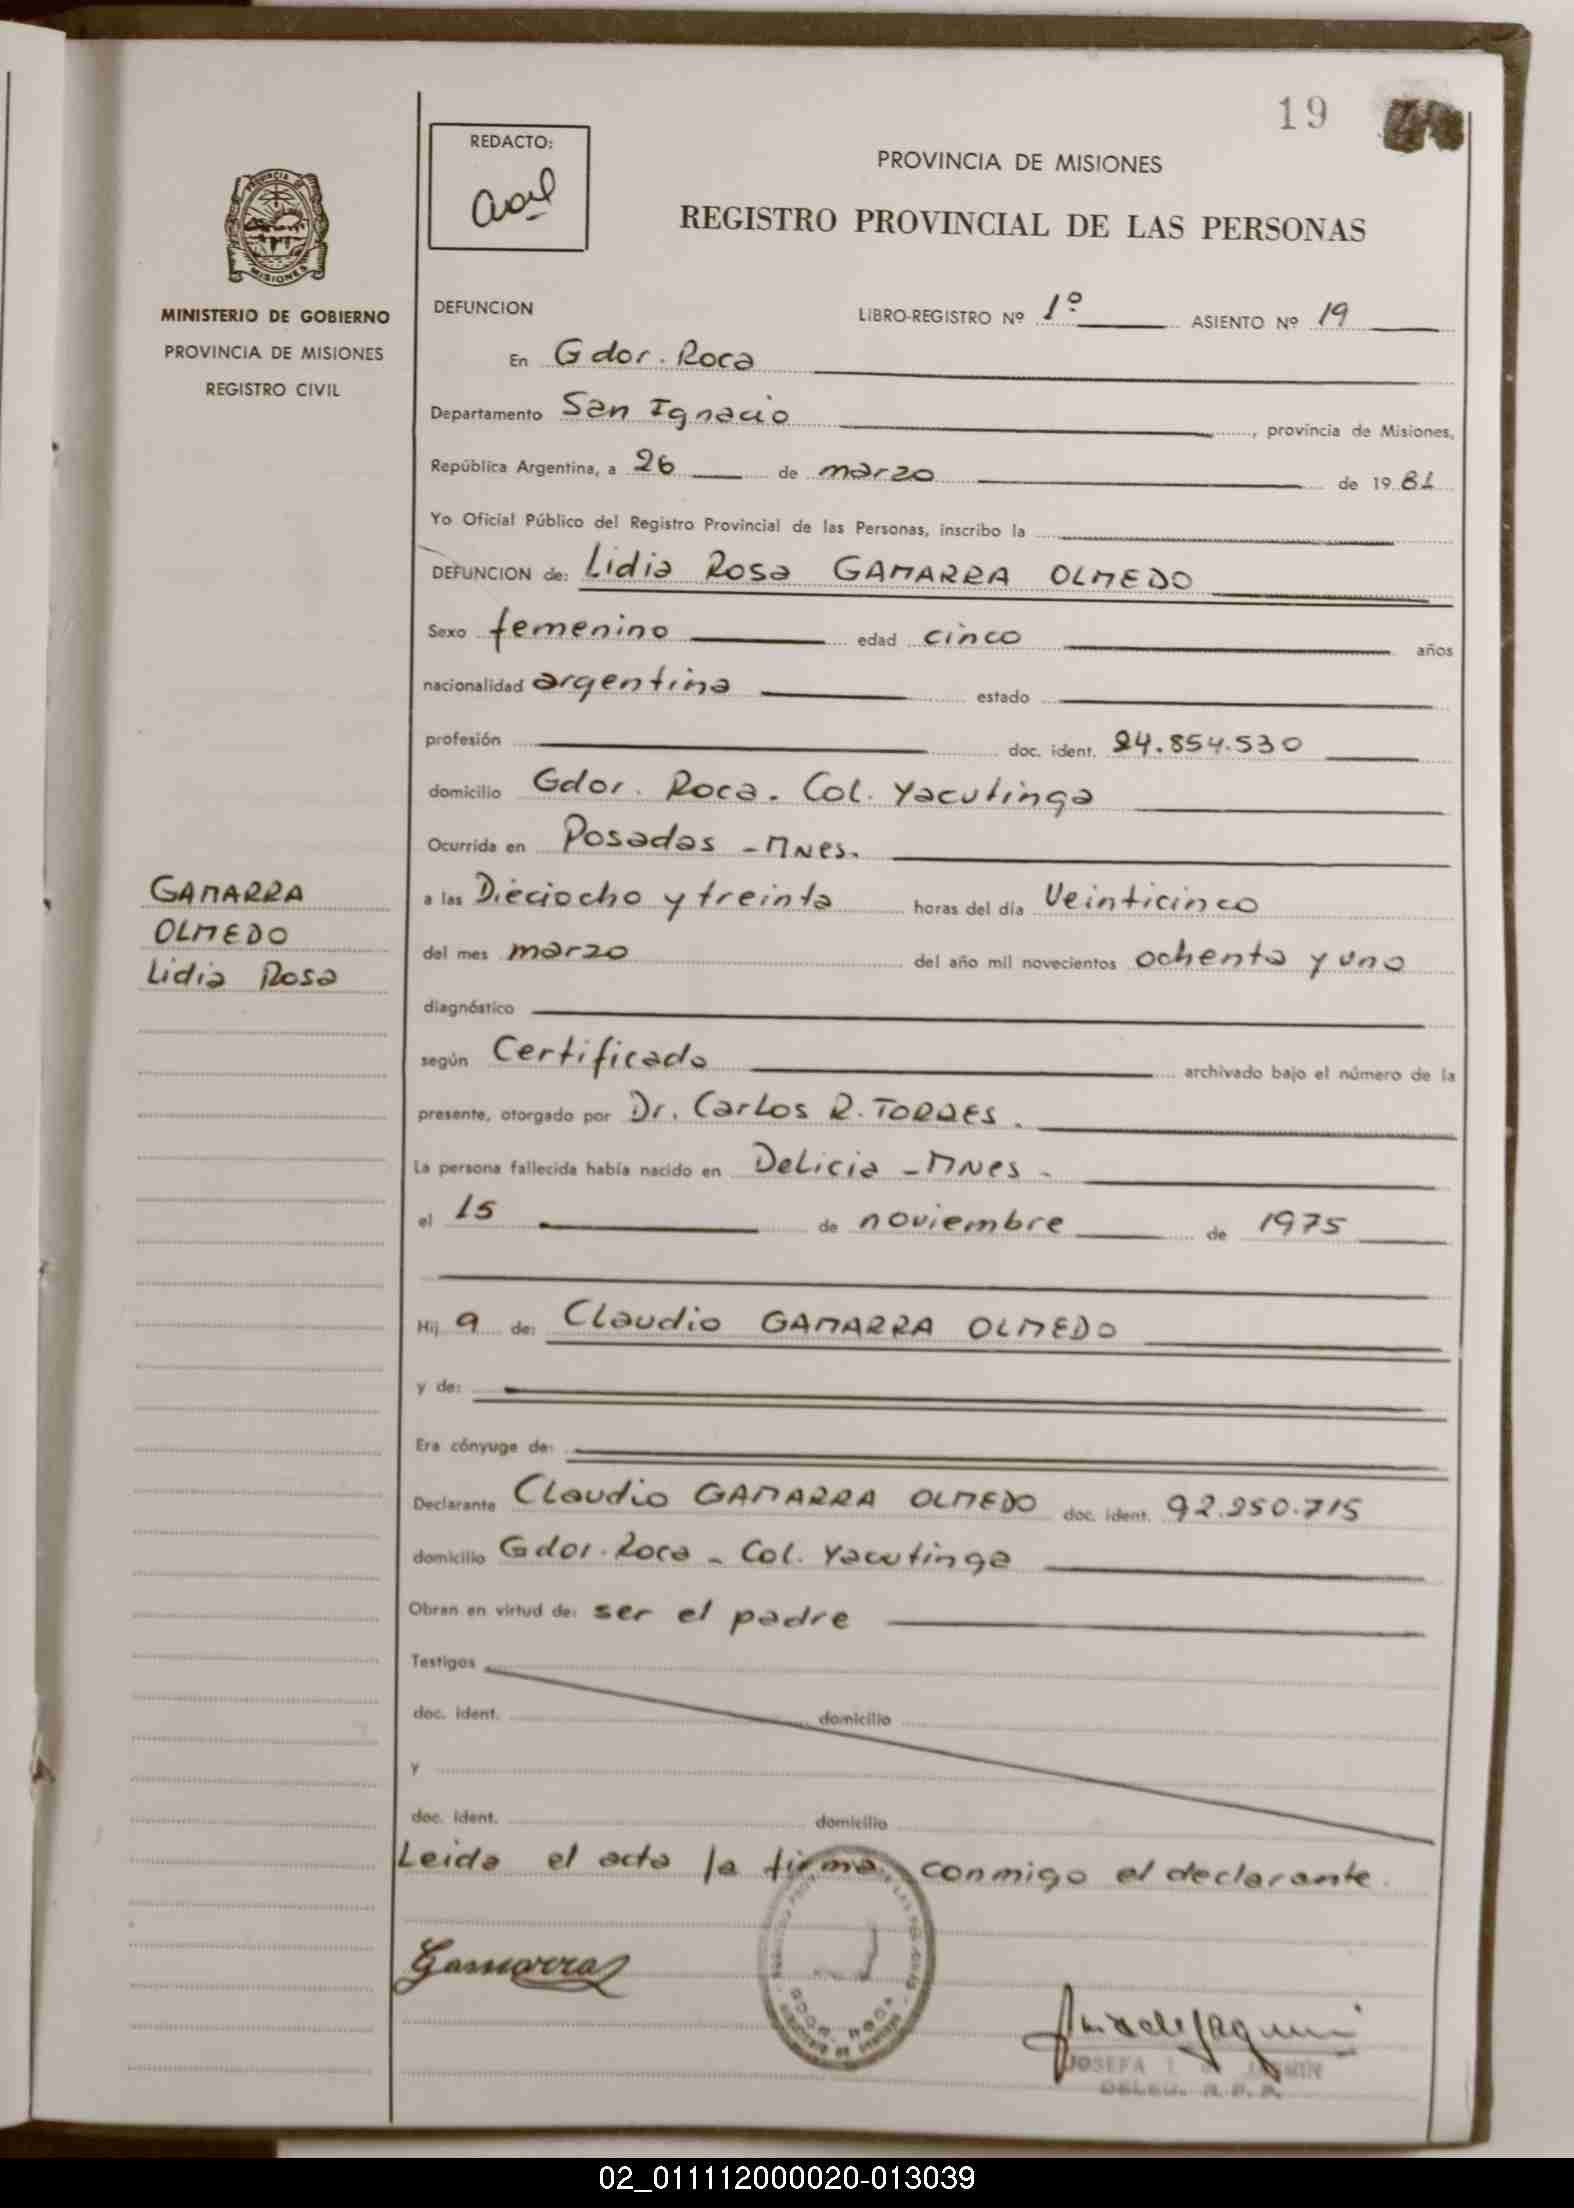 19
REDACTO:
PROVINCIA DE MISIONES
REGISTRO PROVINCIAL DE LAS PERSONAS
PROVINCIA DE
MISIONES
MINISTERIO DE GOBIERNO
PROVINCIA DE MISIONES
REGISTRO CIVIL
DEFUNCION LIBRO-REGISTRO Nº 1º ASIENTO Nº 19
En Gdor. Roca
Departamento San Ignacio, provincia de Misiones,
República Argentina, a 26 de marzo de 1981
Yo Oficial Público del Registro Provincial de las Personas, inscribo la
DEFUNCION de: Lidia Rosa GAMARRA OLMEDO
Sexo femenino edad cinco años
nacionalidad argentina estado
profesión doc. ident. 24.854.530
domicilio Gdor. Roca. Col. Yacutinga
Ocurrida en Posadas - Mnes.
GAMARRA
OLMEDO
Lidia Rosa
a las Dieciocho y treinta horas del día Veinticinco
del mes marzo del año mil novecientos ochenta y uno
diagnóstico
según Certificado archivado bajo el número de la
presente, otorgado por Dr. Carlos R. TORRES.
La persona fallecida había nacido en Delicia - Mnes -
el 15 de noviembre de 1975
Hija de: Claudio GAMARRA OLMEDO
y de:
Era cónyuge de:
Declarante Claudio GAMARRA OLMEDO doc. ident. 92.250.715
domicilio Gdor. Roca - Col. Yacutinga
Obran en virtud de: ser el padre
Testigos
doc. ident. domicilio
y
doc. ident. domicilio
Leida el acta la firma conmigo el declarante.
Gamarra
GDOR. ROCA
JOSEFA I.
DELEG. R.P.P.
02_011112000020-013039